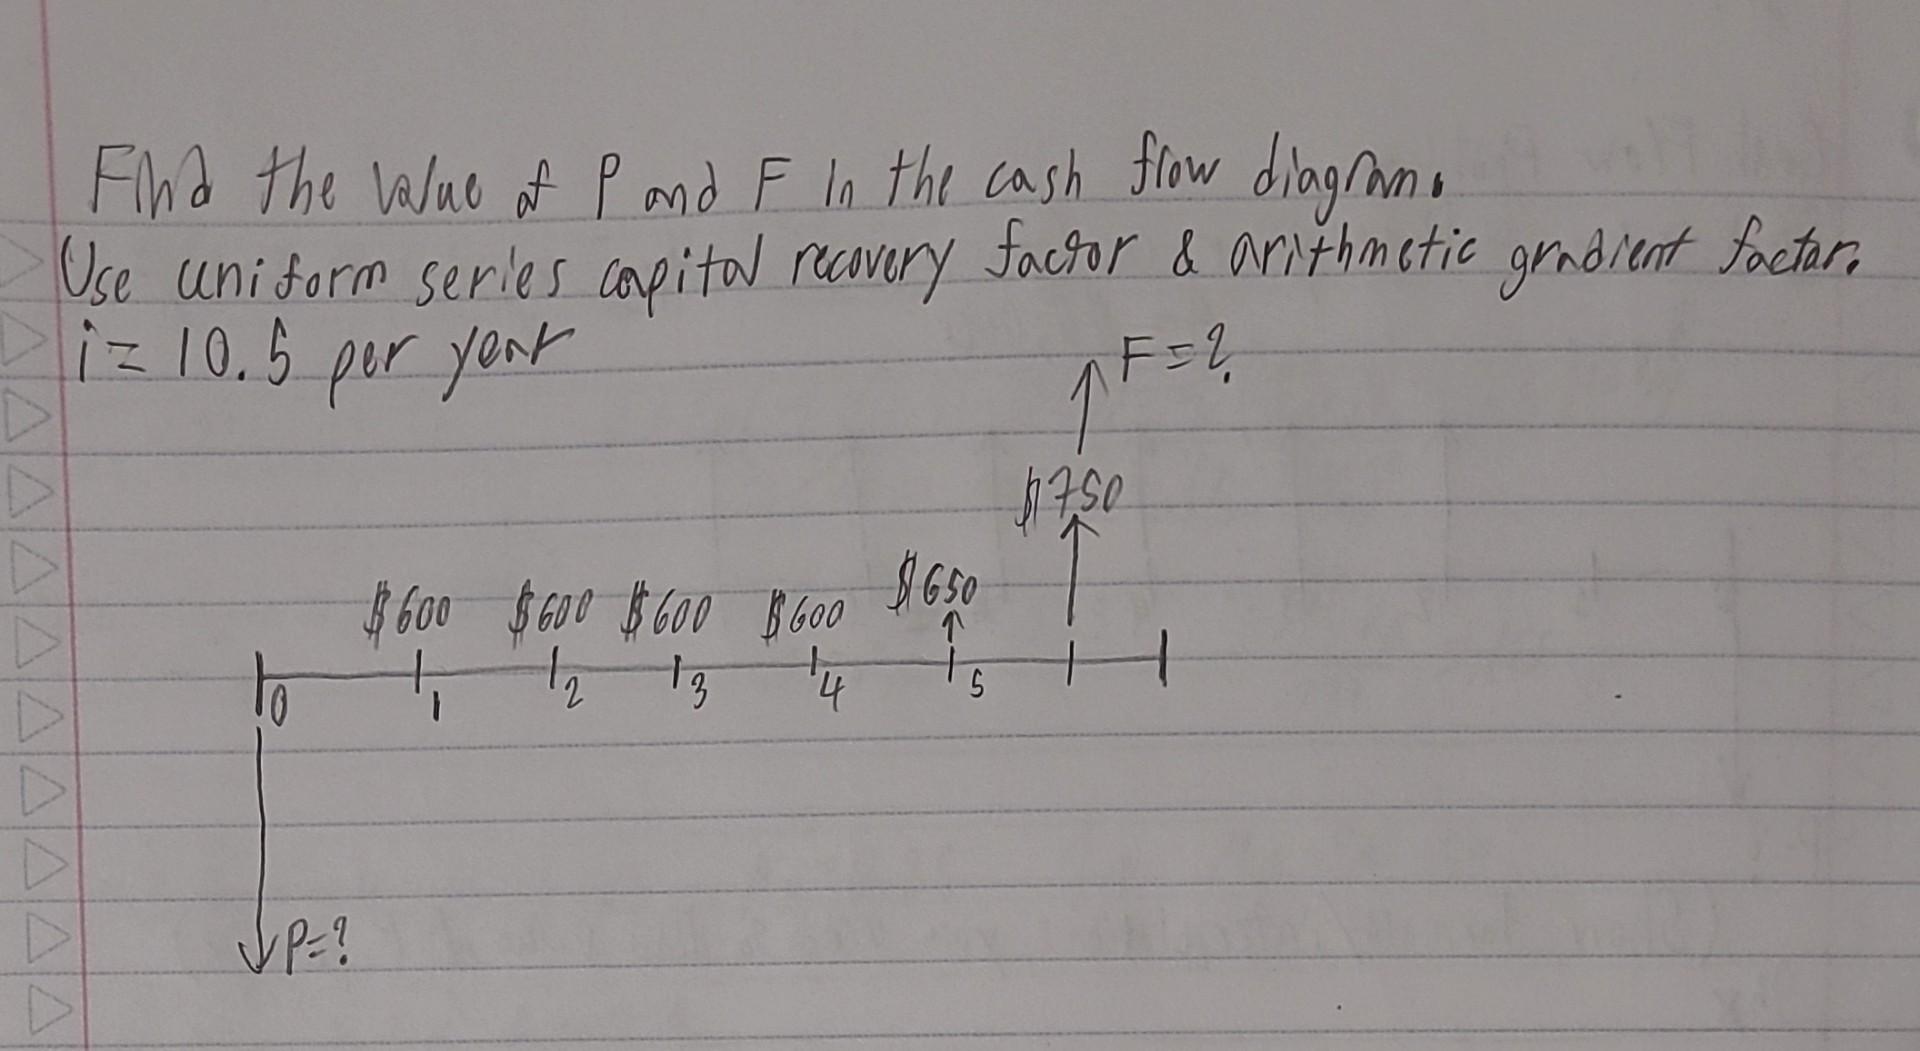 Find the value of P and F in the cash flow diagram.
Use uniform series capital recovery factor & arithmetic gradient factor.
i = 10.5 per year
F = ?
$750
$600 $600 $600 $600 $650
0 1 2 3 4 5
P=?